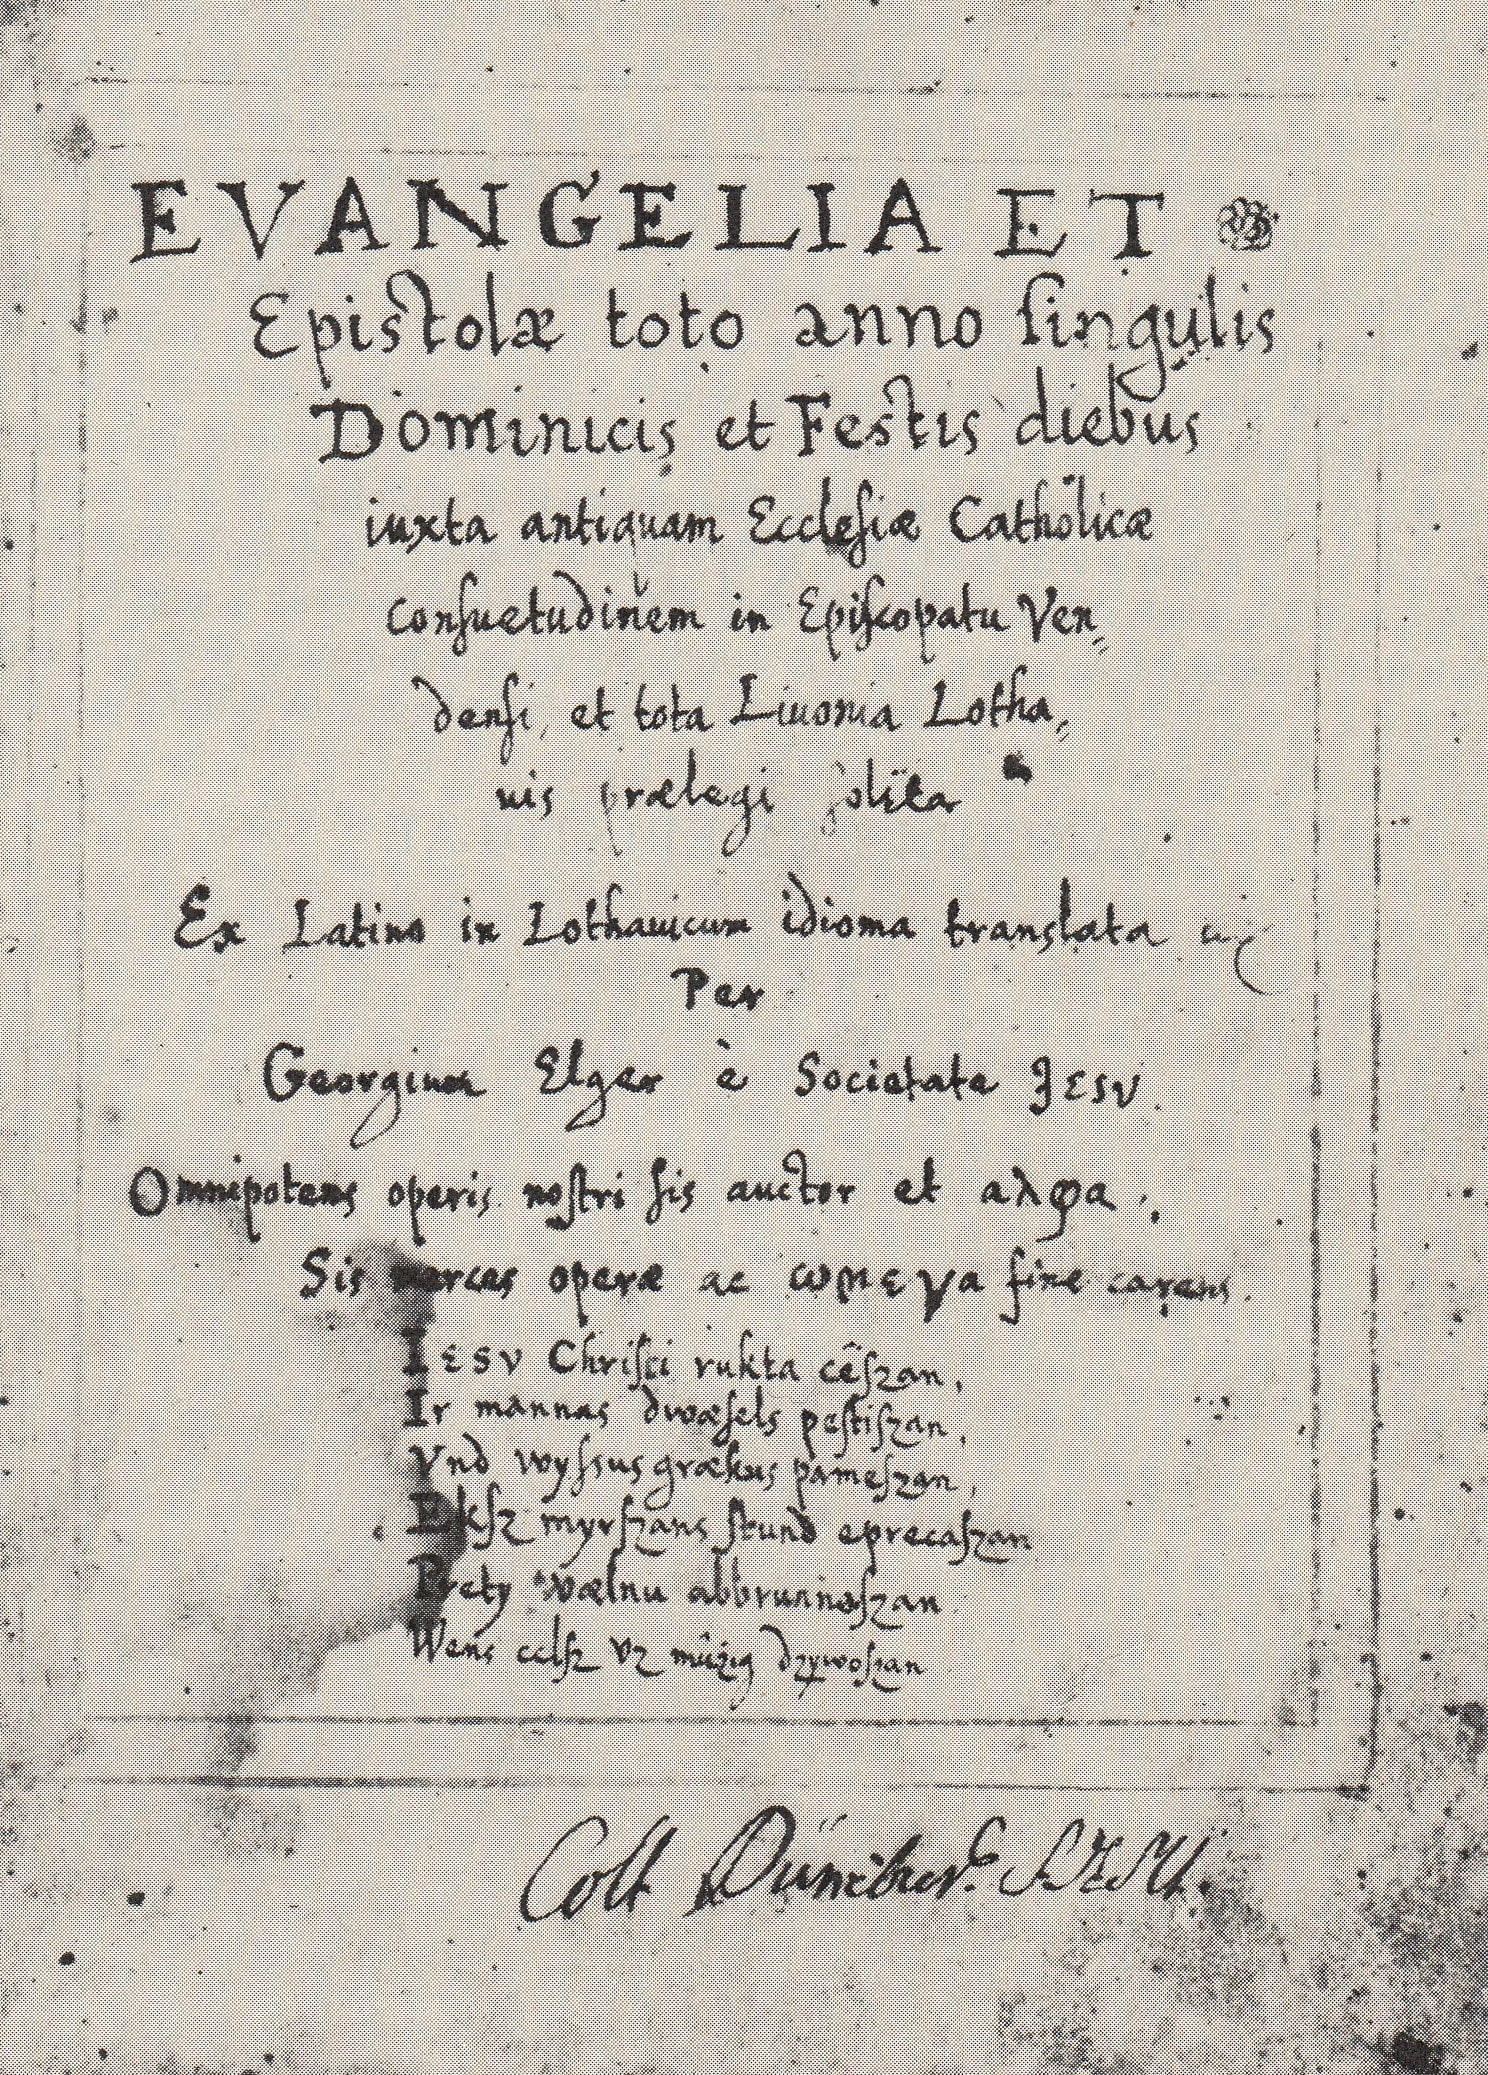 EVANGELIA ET
Epistolæ toto anno ſingulis
Dominicis et Festis diebus
iuxta antiquam Eccleſiæ Catholicæ
conſuetudinem in Epiſcopatu Ven⸗
denſi, et tota Liuonia Lotha⸗
uis prælegi ſolita
Ex Latino in Lothauicum idioma translata
Per
Georgium Elger è Societate Jesv.
Omnipotens operis noſtri ſis auctor et αλφα.
Sis merces operæ ac ωμεγα fine carens.
Iesv Chriſti rukta cêſzan,
Ir mannas dwæſels peſtiſzan,
Vnd wyſsus grækus pameſzan,
Ekſz myrſzans ſtund eprecaſzan
Prety wælnu abbrunnoſzan
Wens celſz vz mûzig dzywoſzan
Coll